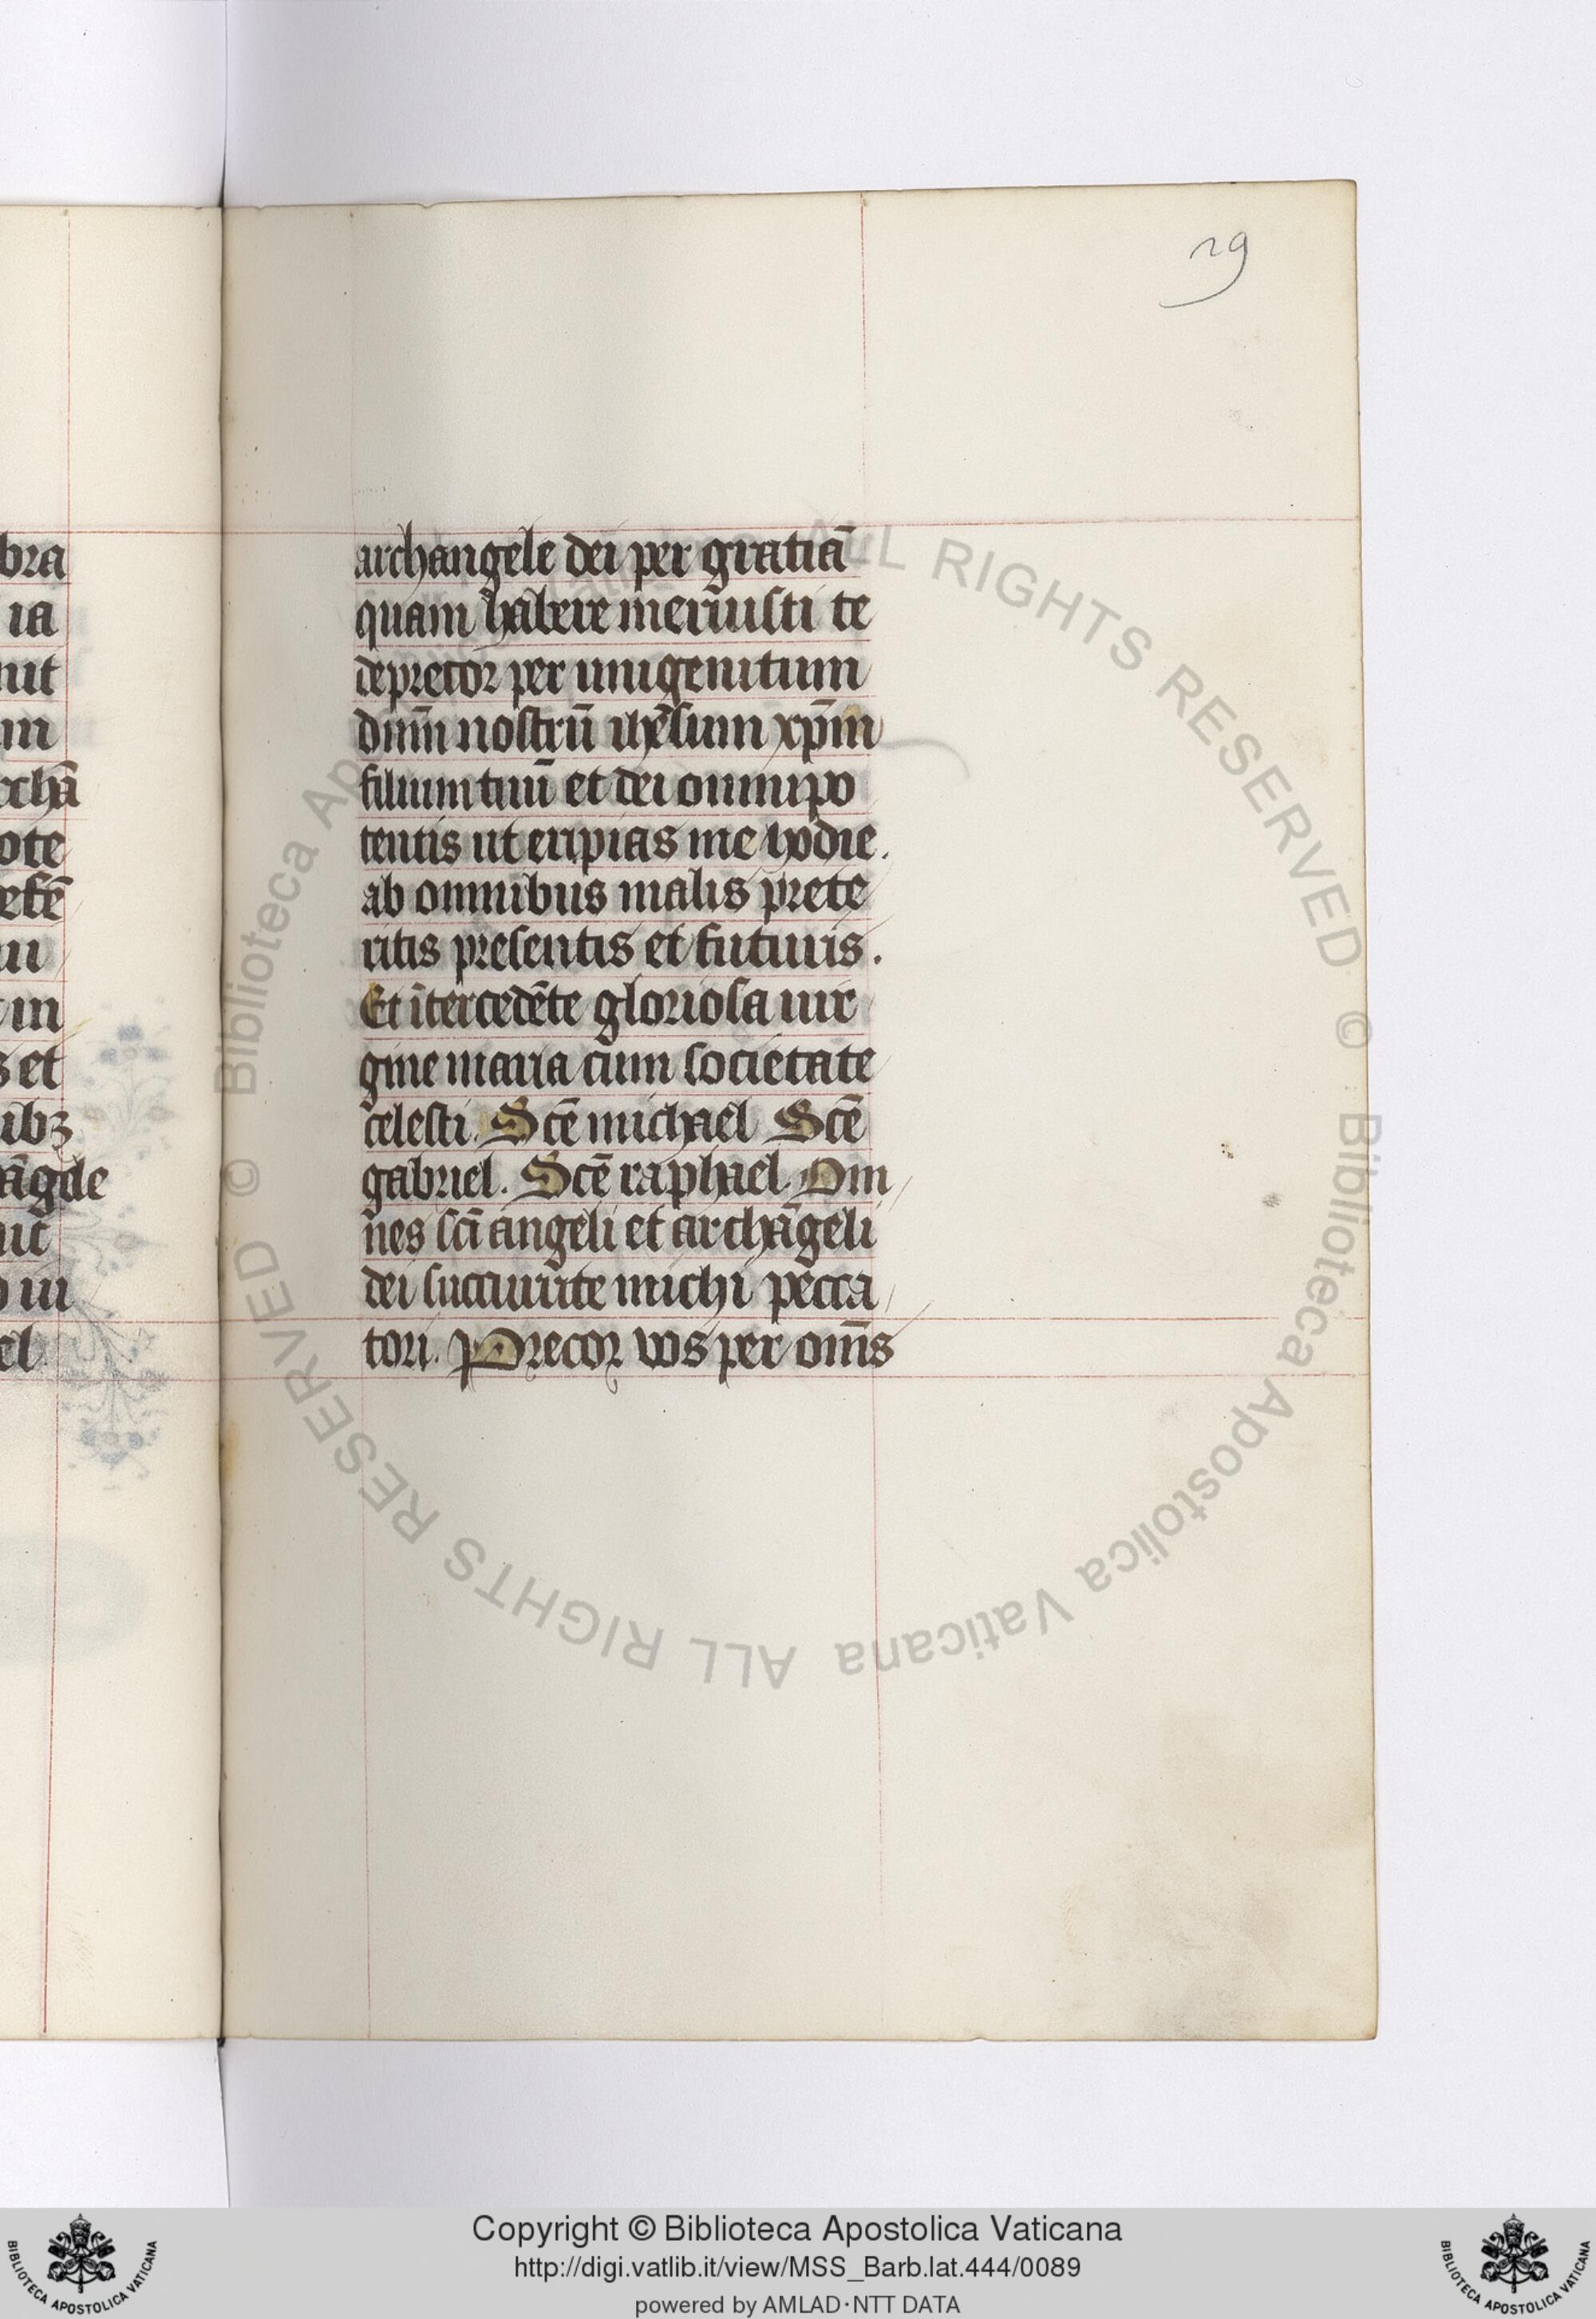 29
bra
ia
nit
m
rchā
ote
efē
in
et
ibꝫ
āgele
uit
el
archangele dei per gratiā
quam habere meruisti te
deprecor per unigenitum
dnm̄ nostrū ihēsum xp̄m
filium tuū et dei omnipo
tentis ut eripias me hodie.
ab omnibus malis prete
ritis presentis et futuris.
Et ītercedēte gloriosa uir
gine maria cum societate
celesti. Scē michael Scē
gabriel. Scē raphael. Om
nes scī angeli et archāgeli
dei succurrite michi pecca
tori. Precor vos per om̄s
© Biblioteca Apostolica Vaticana ALL RIGHTS RESERVED © Biblioteca Apostolica Vaticana ALL RIGHTS RESERVED
Copyright © Biblioteca Apostolica Vaticana
http://digi.vatlib.it/view/MSS_Barb.lat.444/0089
powered by AMLAD·NTT DATA
BIBLIOTECA APOSTOLICA VATICANA
BIBLIOTECA APOSTOLICA VATICANA